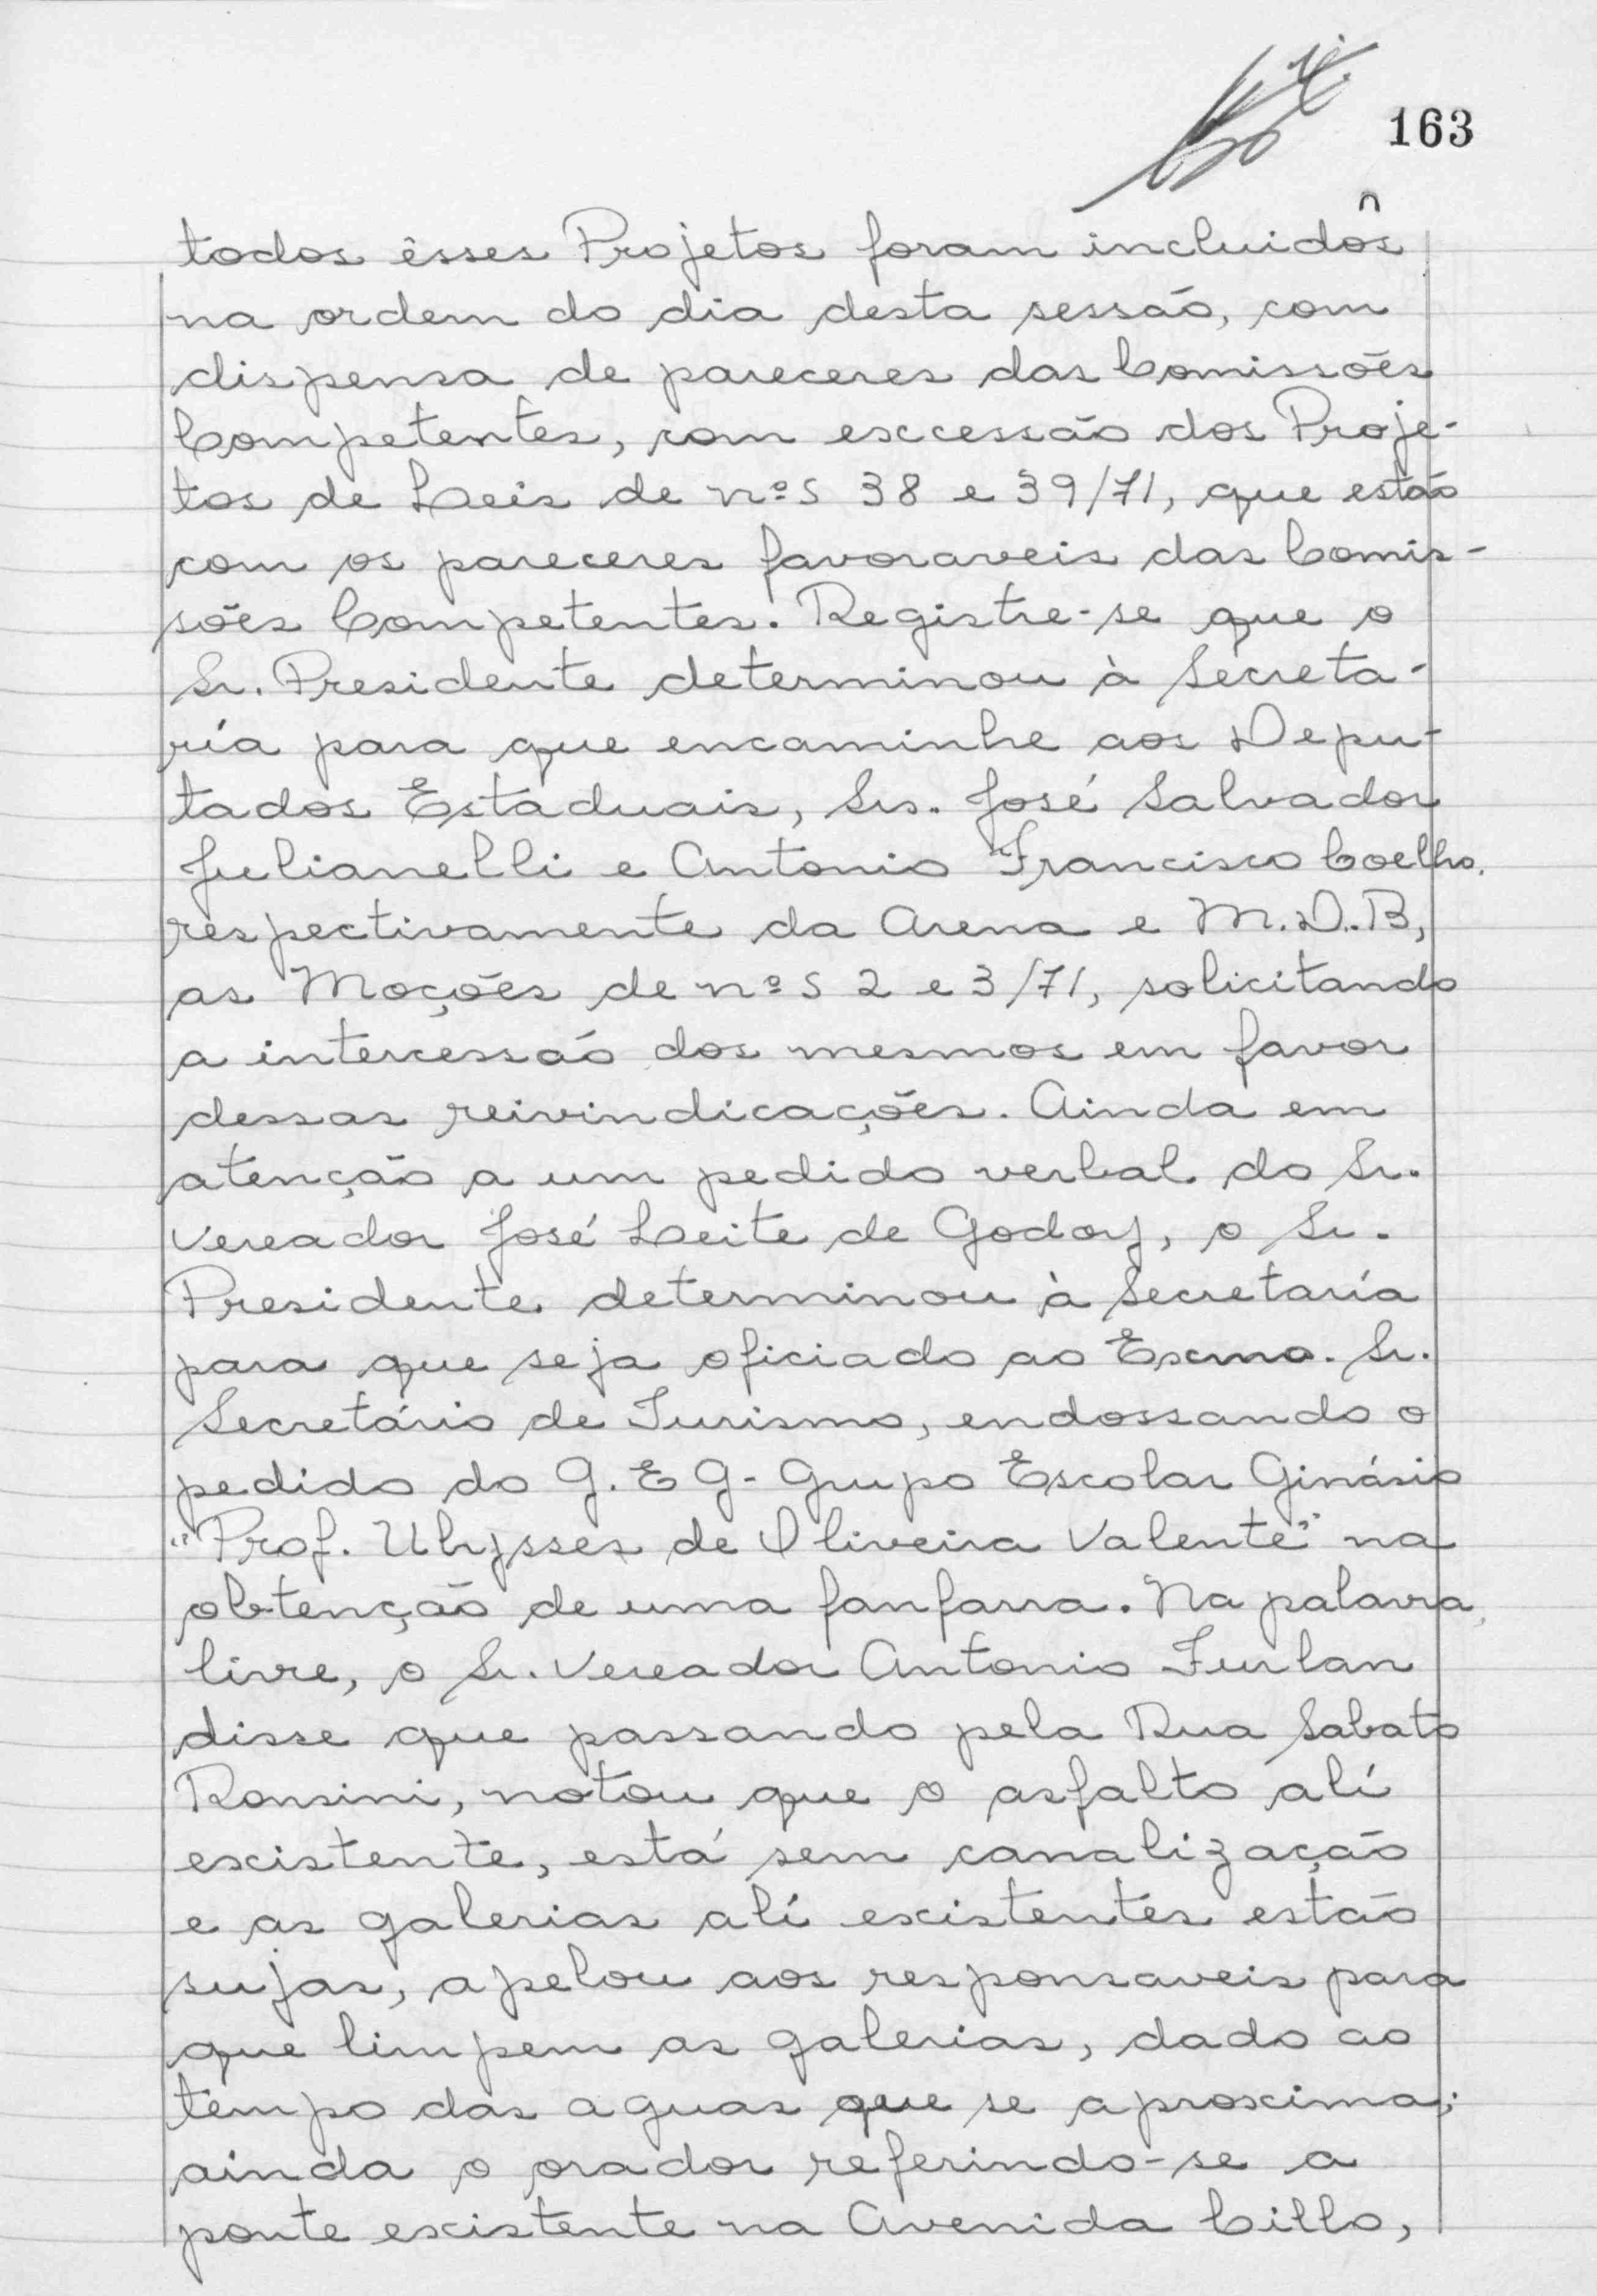 163
todos êsses Projetos foram incluidos
na ordem do dia desta sessão, com
dispensa de pareceres das Comissões
Competentes, com excessão dos Proje-
tos de Leis de nºs 38 e 39/71, que estão
com os pareceres favoraveis das Comis-
sões Competentes. Registre-se que o
Sr. Presidente determinou à Secreta-
ría para que encaminhe aos Depu-
tados Estaduais, Srs. José Salvador
Julianelli e Antonio Francisco Coelho,
respectivamente da Arena e M.D.B,
as Moções de nºs 2 e 3/71, solicitando
a intercessão dos mesmos em favor
dessas reivindicações. Ainda em
atenção a um pedido verbal do Sr.
Vereador José Leite de Godoy, o Sr.
Presidente determinou à Secretaría
para que seja oficiado ao Exmo. Sr.
Secretário de Turismo, endossando o
pedido do G.E G- Grupo Escolar Ginásio
"Prof. Ulysses de Oliveira Valente" na
obtenção de uma fanfarra. Na palavra
livre, o Sr. Vereador Antonio Furlan
disse que passando pela Rua Sabato
Ronsini, notou que o asfalto alí
existente, está sem canalização
e as galerias alí existentes estão
sujas, apelou aos responsaveis para
que limpem as galerias, dado ao
tempo das aguas que se aproxima;
ainda o orador referindo-se a
ponte existente na Avenida Cillo,